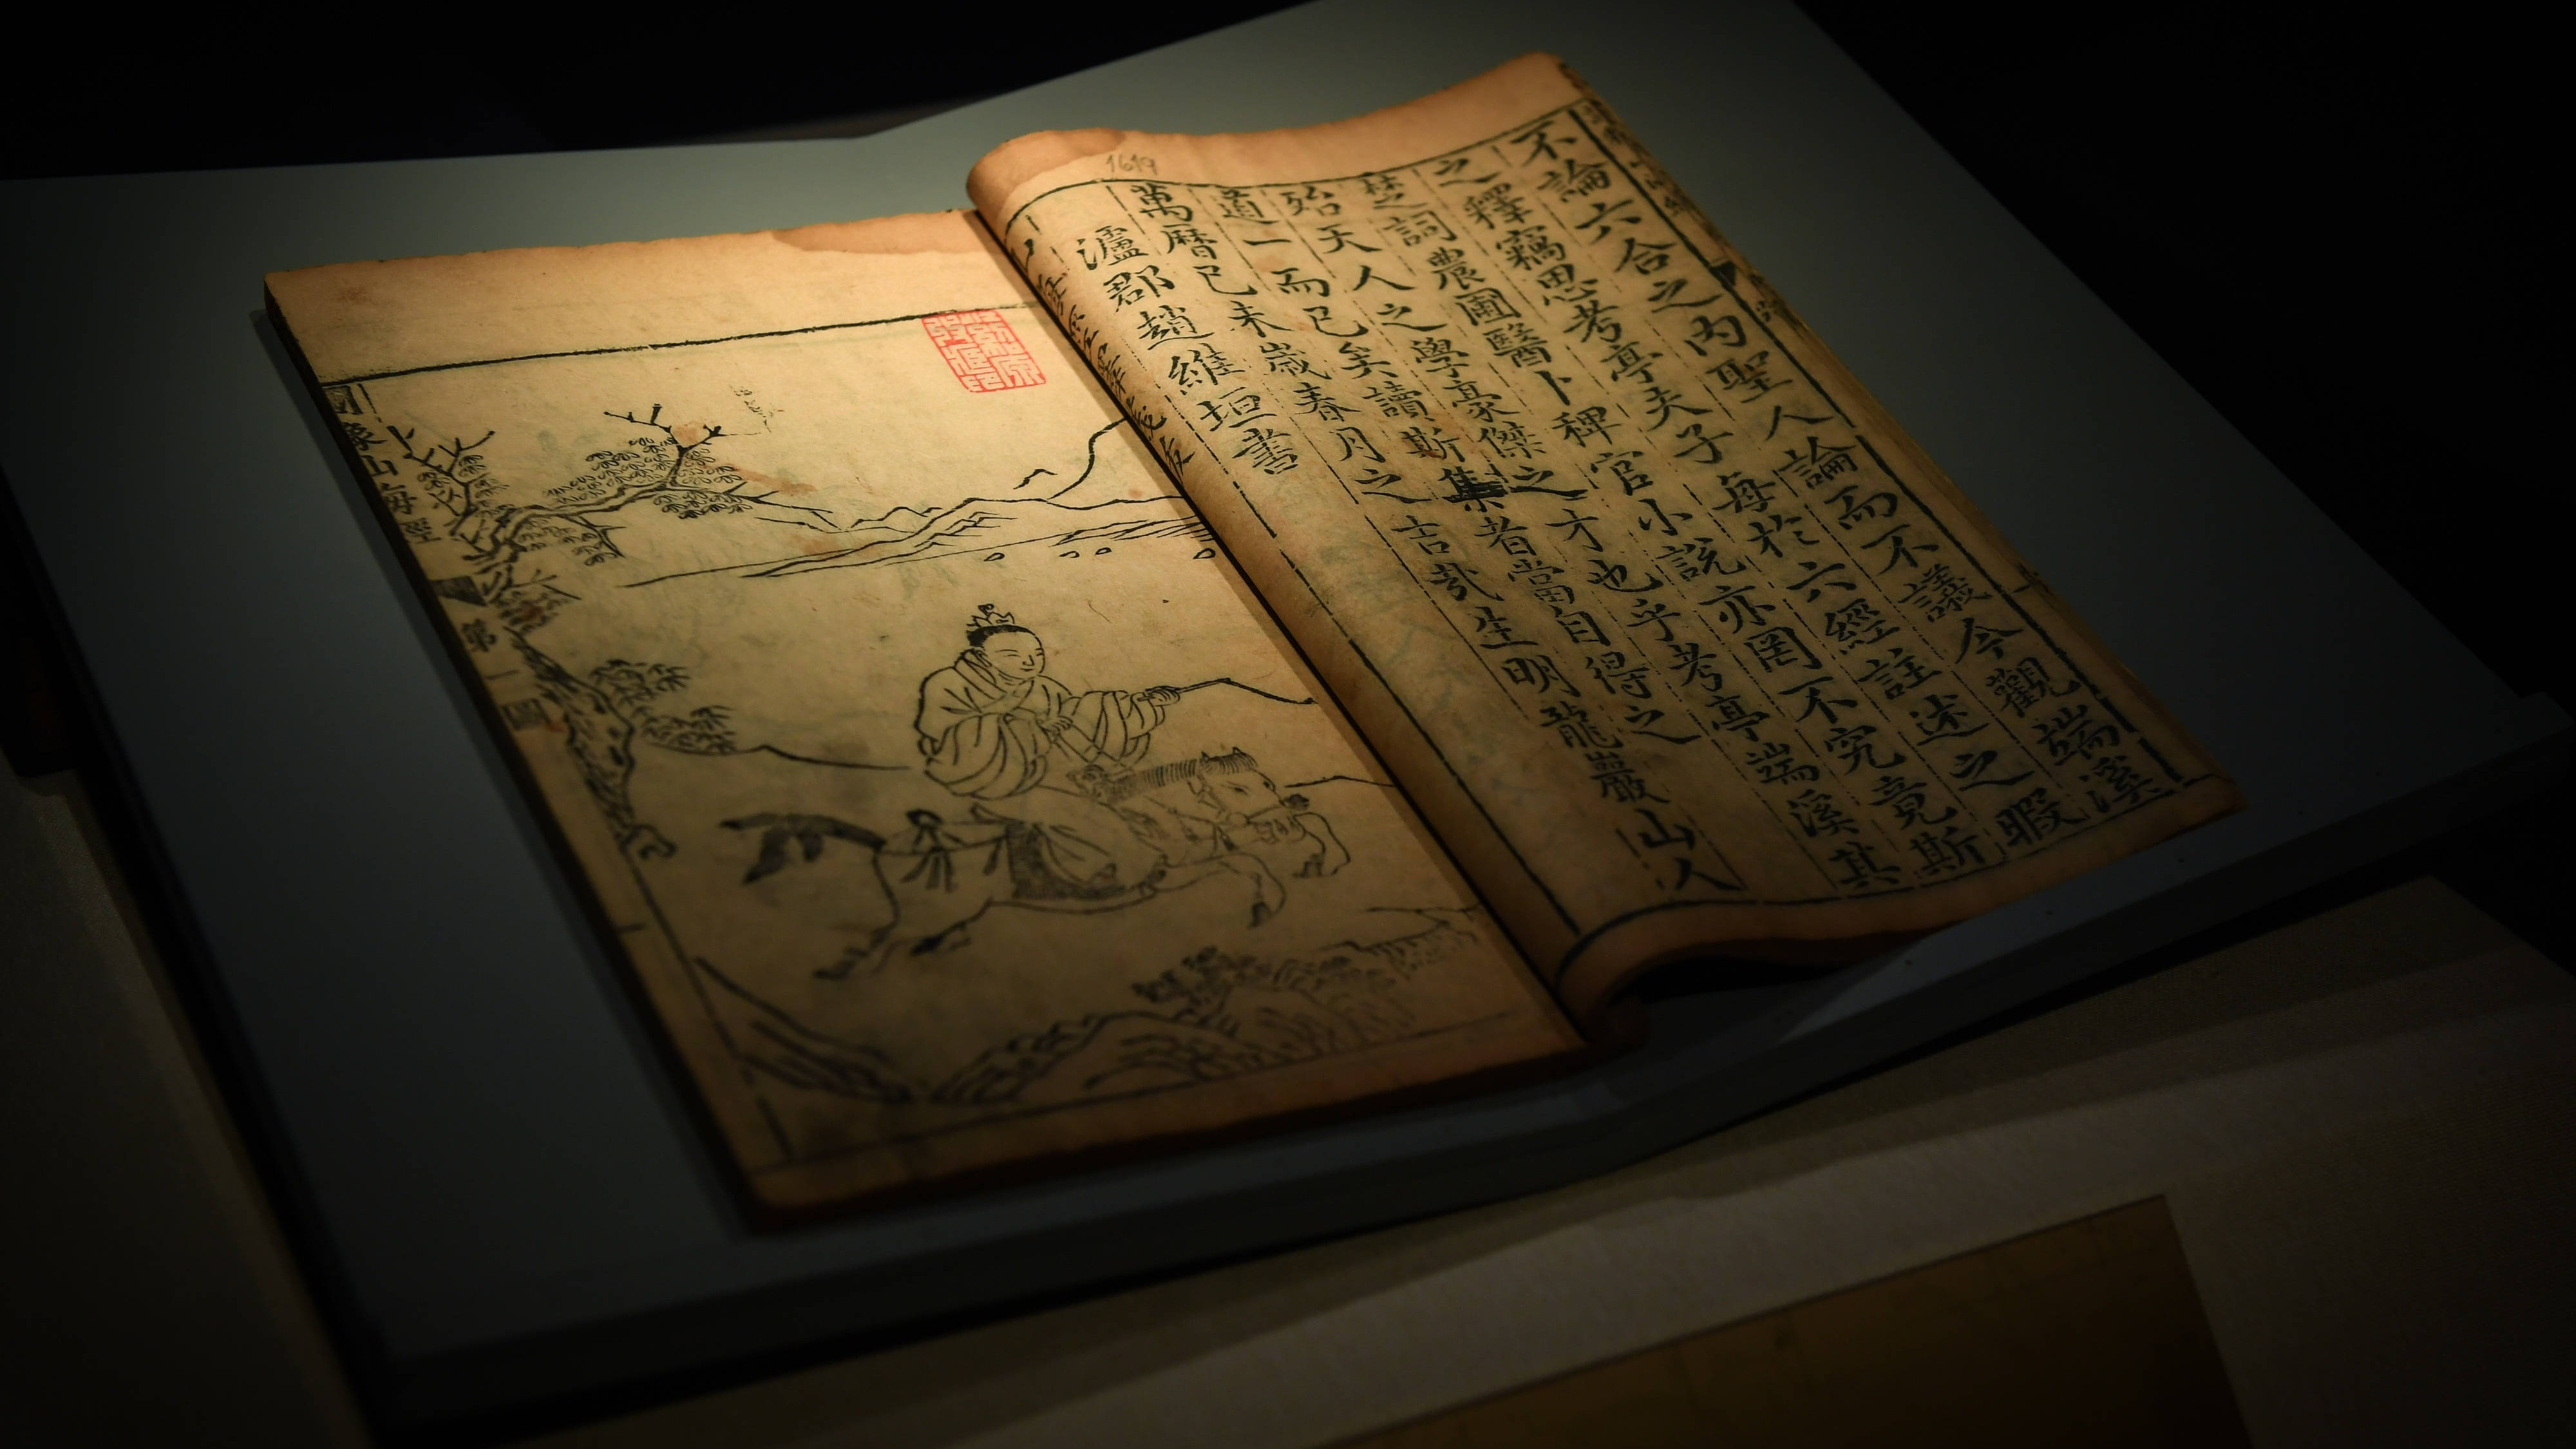 不論六合之內聖人論而不議今觀端溪
之釋竊思考亭夫子每於六經註述之暇
楚詞農圃醫卜稗官小說亦罔不究竟斯
殆天人之學豪傑之才也乎考亭端溪其
道一而已矣讀斯集者當自得之
萬曆已未歲春月之吉哉生明龍巖山人
瀘郡趙維垣書
1619
圖像山海經
第一圖